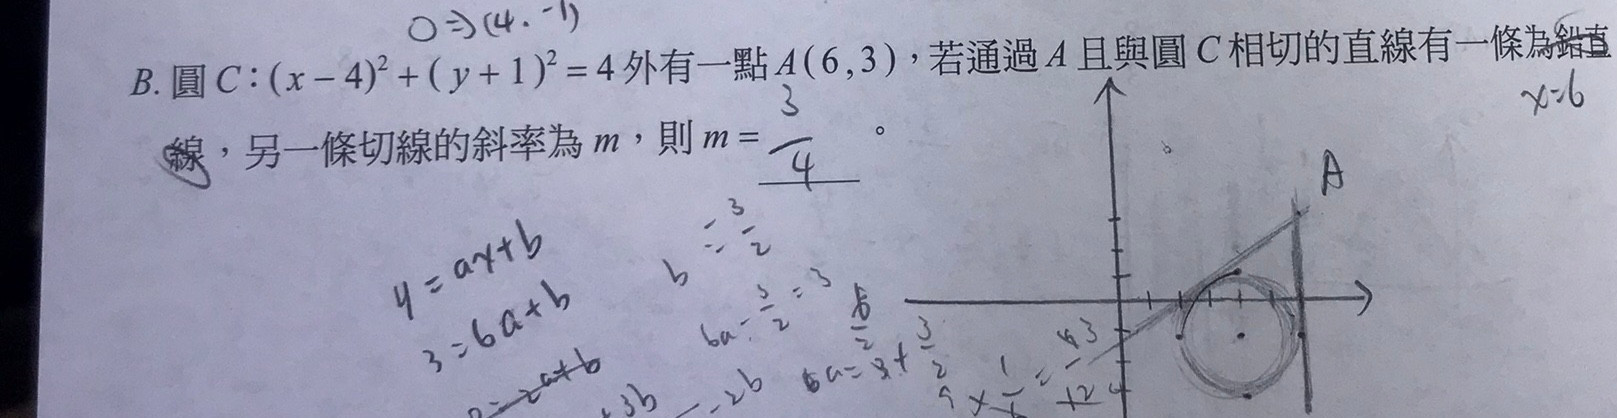 O⇒(4.-1)
B. 圓 C:(x-4)²+(y+1)²=4 外有一點 A(6,3),若通過 A 且與圓 C 相切的直線有一條為鉛直
x=6
線,另一條切線的斜率為 m,則 m= 3/4 。
A
y=ax+b
3=6a+b
b = 3/2
6a-3/2=3
+3b
-2b